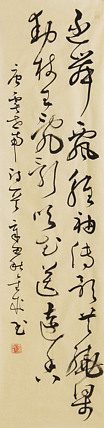 逐舞飄輕袖傳歌共繞梁
動枝生亂影吹花送遠香
唐虞世南詩一首辛丑秋書